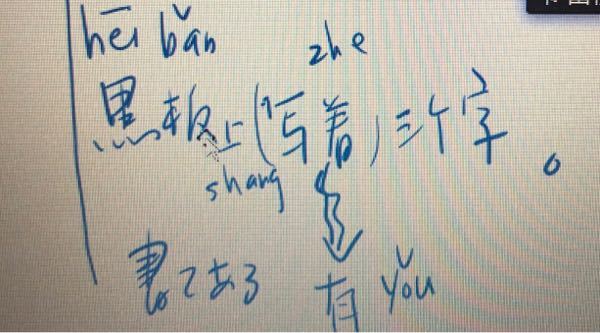 hēi bǎn zhe
黑板上(写着)三个字。
shang
書てある 有 yǒu